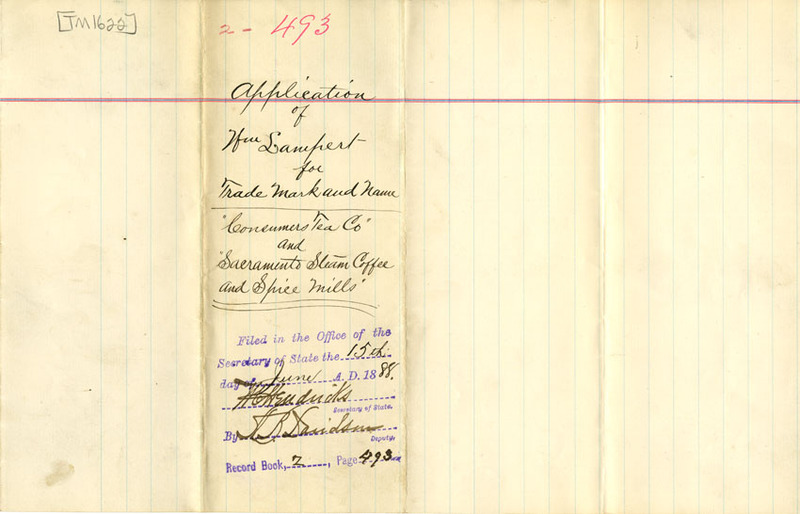 [TM1622]
2 - 493
Application
of
Wm Lampert
for
Trade Mark and Name
"Consumers Tea Co"
and
"Sacramento Steam Coffee
and Spice Mills"
Filed in the Office of the
Secretary of State the 15th
day of June A. D. 1888.
W C Hendricks
Secretary of State.
By Davidson
Deputy.
Record Book, 2, Page 493